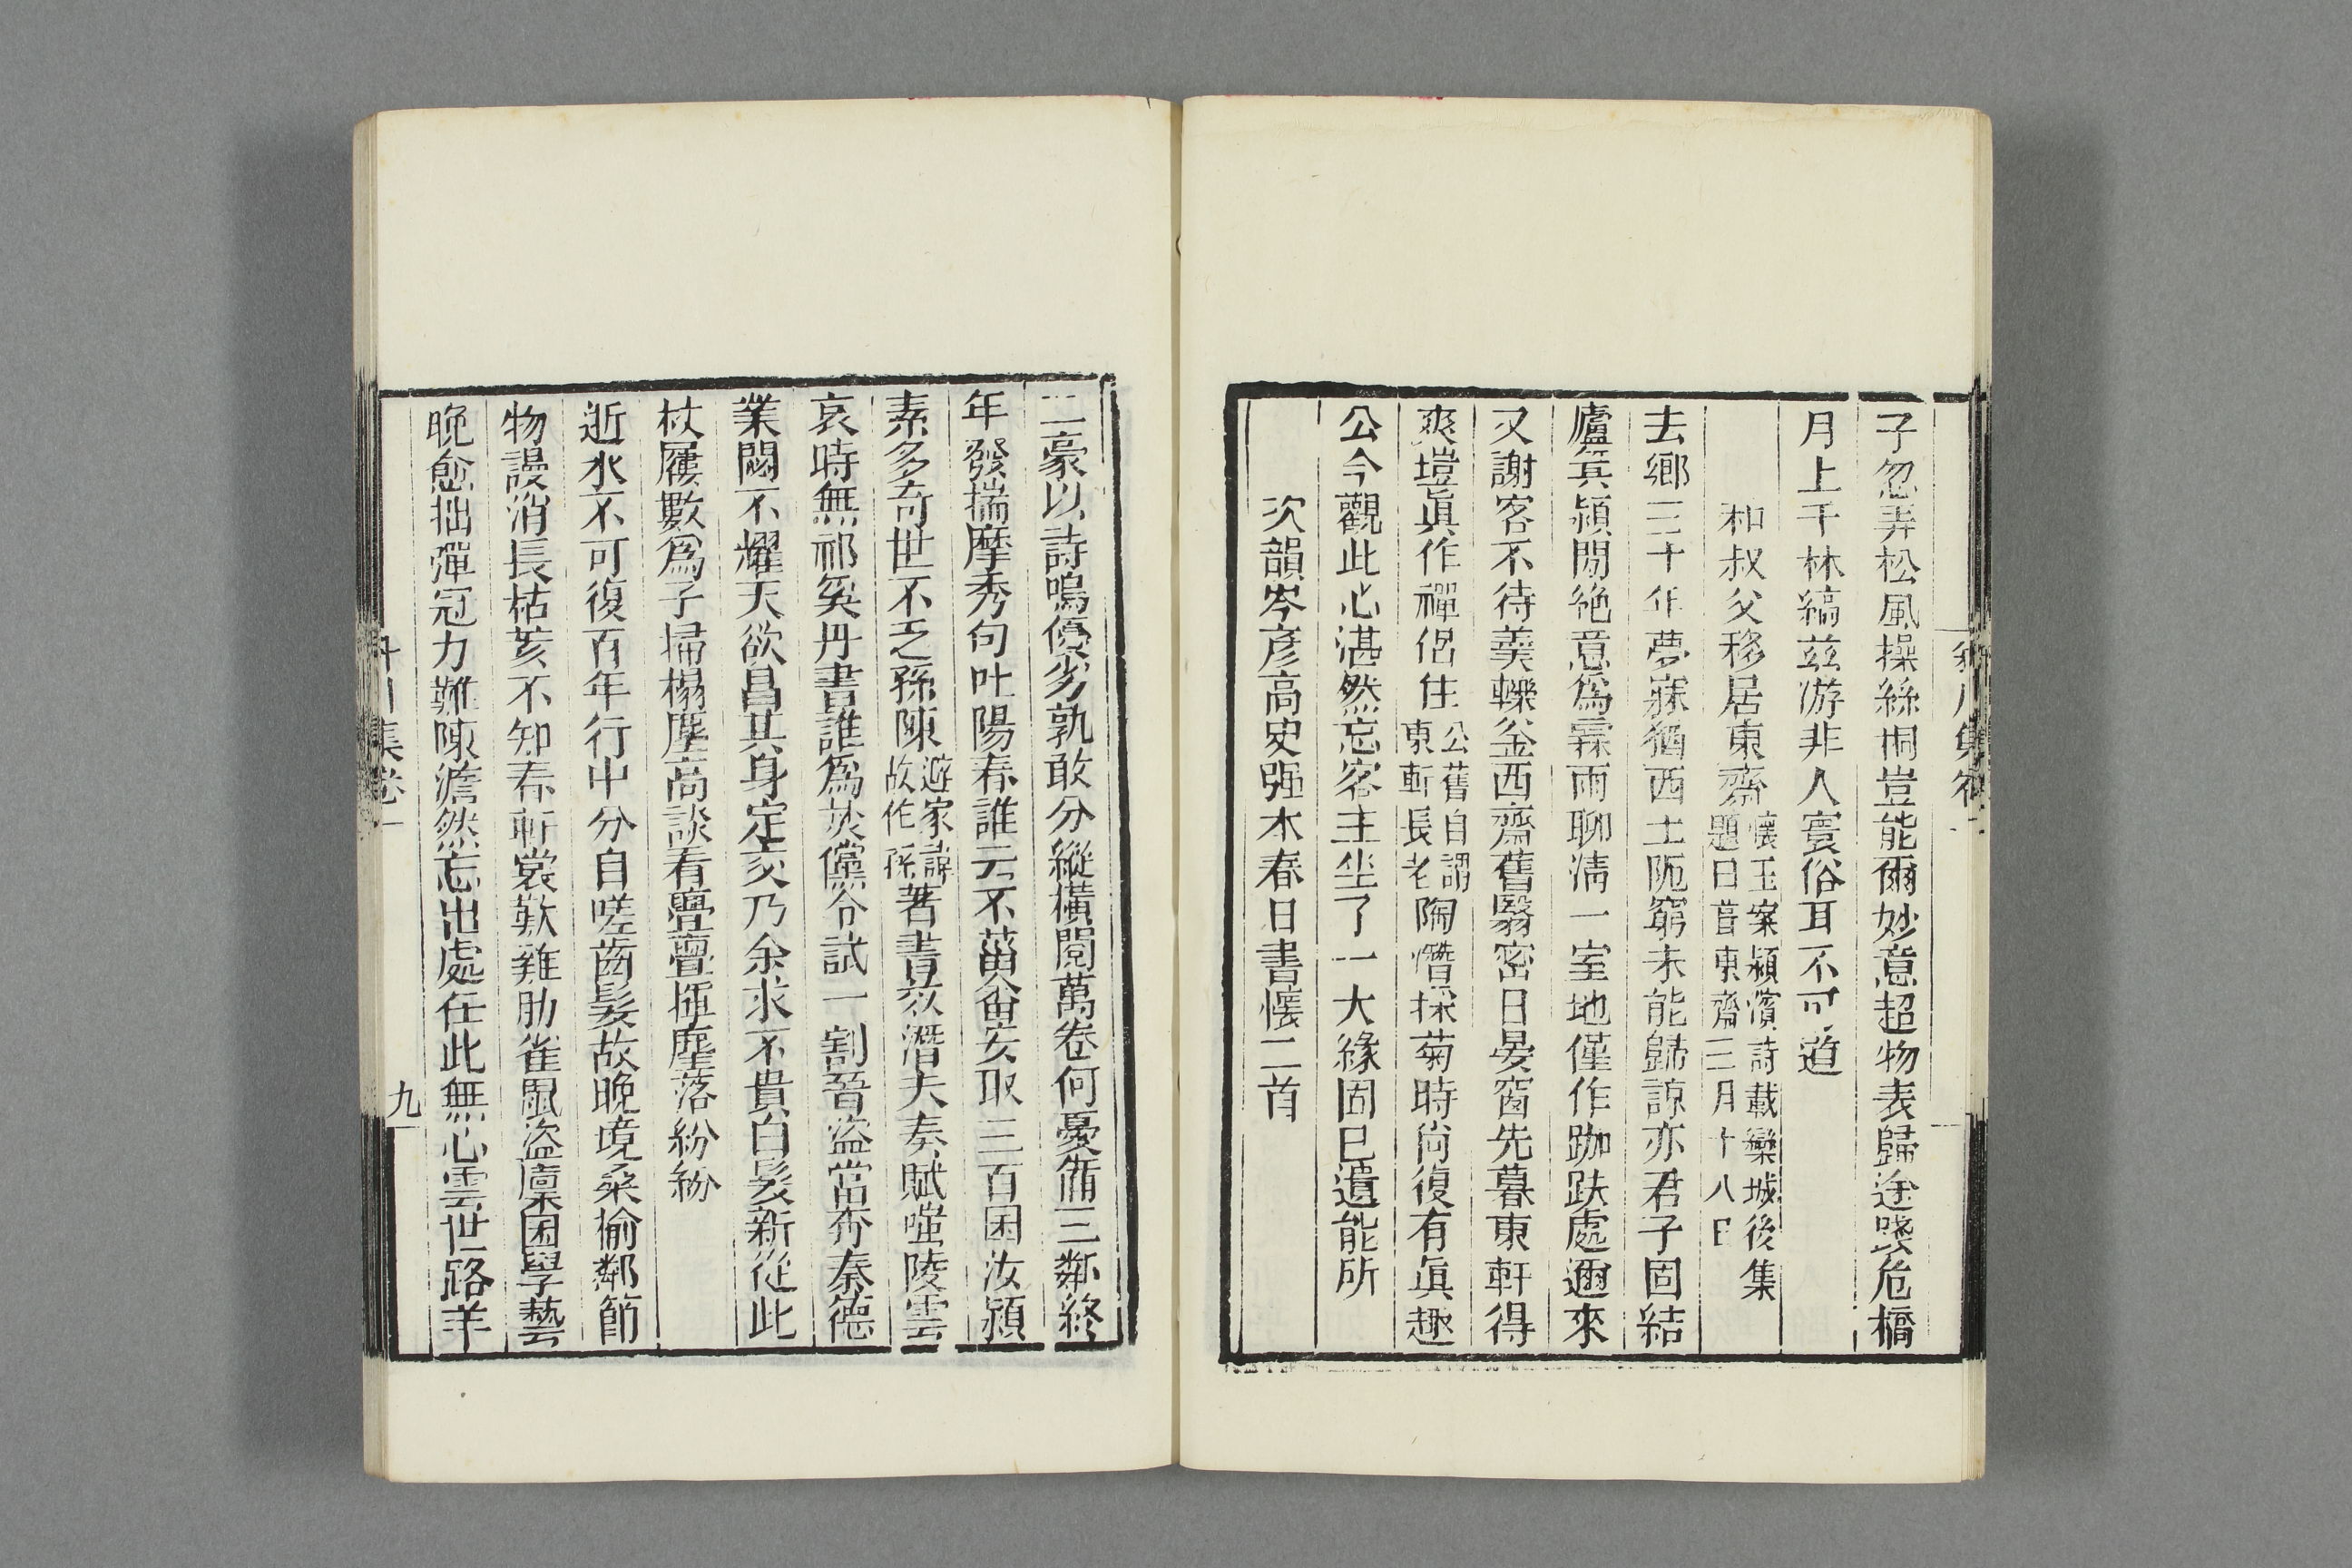 子忽弄松風操絲桐豈能爾妙意超物表歸途躡危橋
月上千林縞兹游非人寰俗耳不可道
和叔父移居東齋懷玉案潁濱詩載欒城後集
題曰葺東齋三月十八日
去鄉三十年夢寐猶西土阨窮未能歸諒亦君子固結
廬箕潁閒絶意爲霖雨聊淸一室地僅作跏趺處邇來
又謝客不待羹轢釜西齋舊翳密日晏窗先暮東軒得
爽塏眞作禪侶住公舊自謂
東軒長老陶潛採菊時尙復有眞趣
公今觀此心湛然忘客主坐了一大緣固已遺能所
次韻岑彦高史强木春日書懷二首
二豪以詩鳴優劣孰敢分縱橫閱萬卷何憂備三鄰終
年發揣摩秀句吐陽春誰云不菑畬安取三百囷汝潁
素多奇世不乏孫陳避家諱
故作孫著書哀潛夫奏賦嗤陵雲
哀時無祁奚丹書誰爲焚儻令試一割晉盜當奔秦德
業閟不耀天欲昌其身定交乃余求不貴白髮新從此
杖屨數爲子掃榻塵高談看亹亹揮麈落紛紛
逝水不可復百年行中分自嗟齒髮故晚境桑榆鄰節
物謾消長枯荄不知春軒裳歎雞肋雀鼠盜廩囷學藝
晚愈拙彈冠力難陳澹然忘出處任此無心雲世路羊
集卷一
九